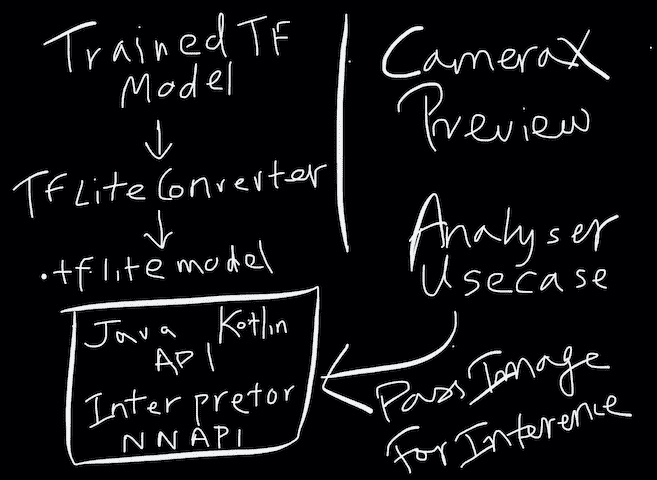 Trained TF
Model
TFLiteConverter
.tflite model
Java Kotlin
API
Interpretor
NNAPI
CameraX
Preview
Analyser
Usecase
Pass Image
For Interence